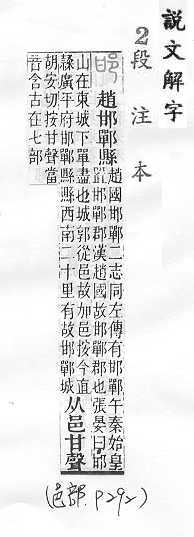 說文解字
2段注本
邯
趙邯鄲縣
趙國邯鄲二志同左傳有邯鄲午秦始皇
置邯鄲郡漢趙國故邯鄲郡也張晏曰邯
山在東城下單盡也城郭從邑故加邑按今直
隸廣平府邯鄲縣縣西南二十里有故邯鄲城
从邑甘聲
胡安切按甘聲當
音含古在七部
(邑部 P292)